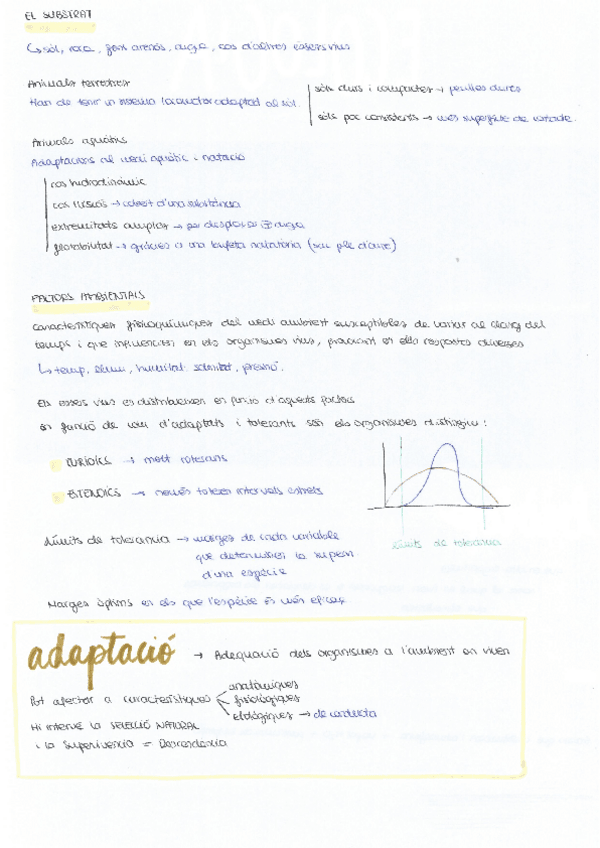 EL SUBSTRAT
↳ sòl, roca, gran arenós, aigua, cos d'altres éssers vius
Animals terrestres
Han de tenir un sistema locomotor adaptad al sòl.
sòls durs i compactes → peülles dures
sòls poc consistents → més superfície de
Animals aquàtics
Adaptacions al medi aquàtic i natació
cos hidrodinàmic
cos fusós → cobert d'una substància
extremitats amples → per desplaçar aigua
flotabilitat → gràcies a una bufeta natatòria (sac ple d'aire)
FACTORS AMBIENTALS
Característiques fisicoquímiques del medi ambient susceptibles de variar al llarg del
temps i que influencien en els organismes vius, provocant en ells respostes diverses
↳ temp, llum, humitat, salinitat, pressió.
Els éssers vius es distribueixen en funció d'aquests factors
En funció de com d'adaptats i tolerants són els organismes distingim:
EURIOICS → molt tolerants
ESTENOICS → només toleren intervals estrets
límits de tolerància
Límits de tolerància → marges de cada variable
que determinen la superv
d'una espècie
Marges òptims en els que l'espècie és més eficaç
adaptació → Adequació dels organismes a l'ambient on viuen
Pot afectar a característiques
anatòmiques
fisiològiques
etològiques → de conducta
Hi intervé la SELECCIÓ NATURAL
i la Supervivència = Descendència